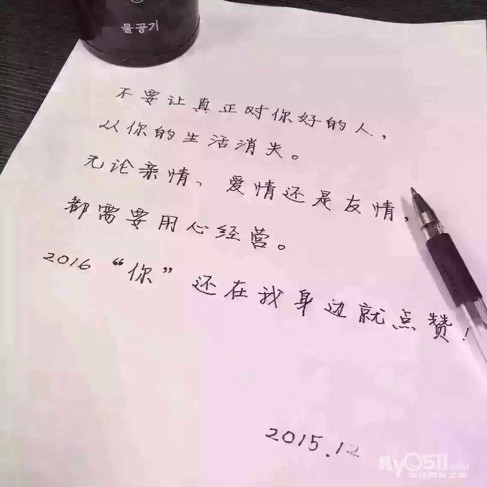 물공기
不要让真正对你好的人，
从你的生活消失。
无论亲情、爱情还是友情，
都需要用心经营。
2016 “你” 还在我身边就点赞！
2015.12